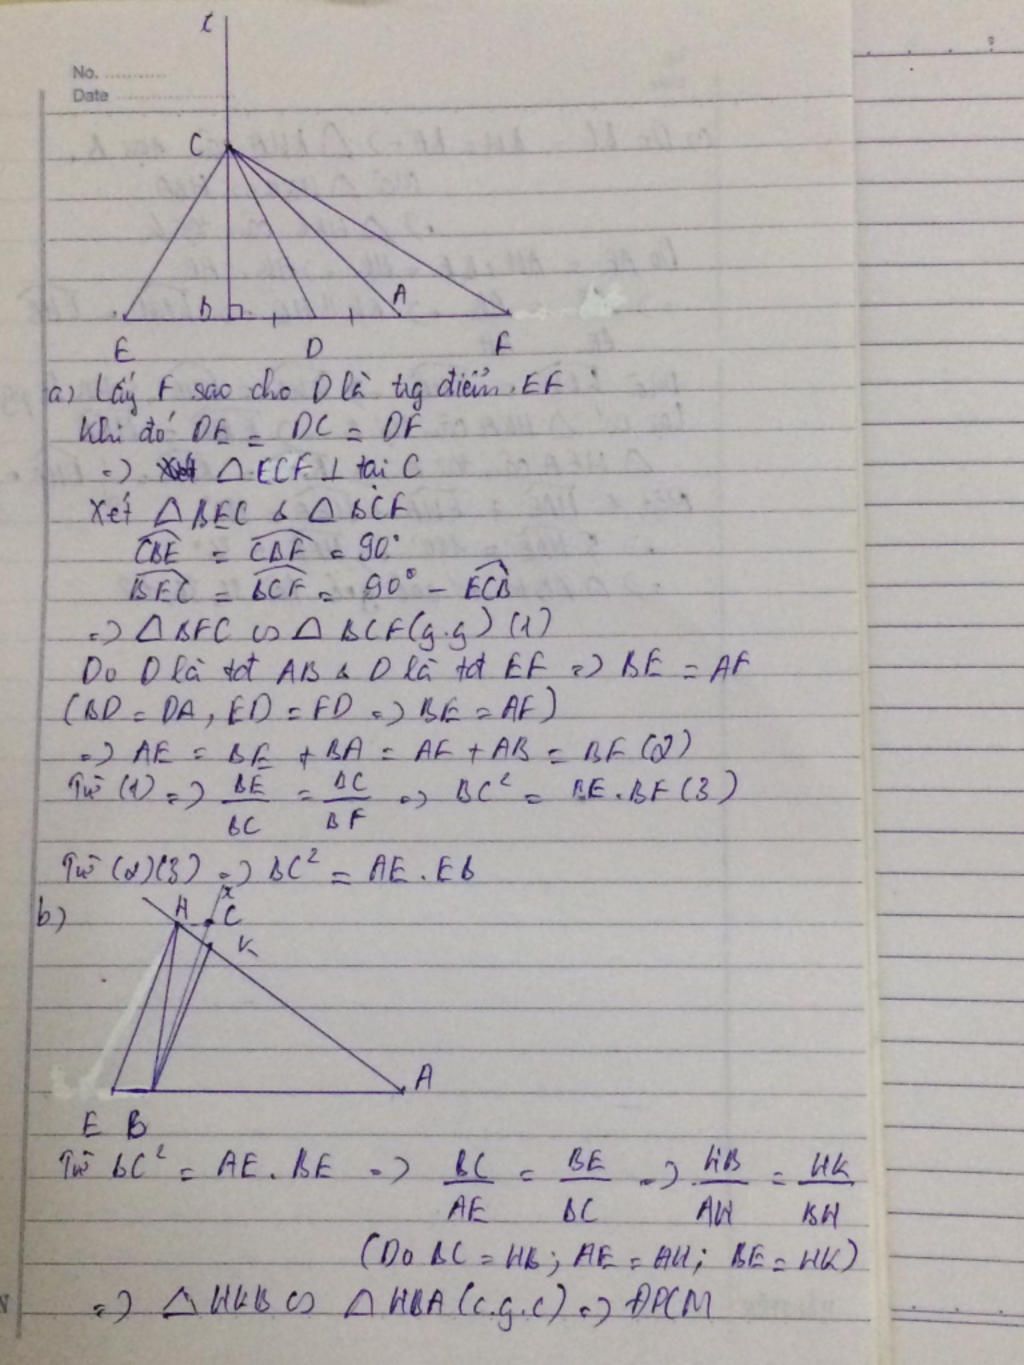 No.
Date
x
C
B
A
E
D
F
a) Lấy F sao cho D là trg điểm EF
Khi đó DE = DC = DF
=> △ ECF ⊥ tại C
Xét △BEC & △BCF
CBE = CBF = 90°
BEC = BCF = 90° - ECB
=> △BFC ∽ △ BCF (g.g) (1)
Do D là tđ AB & D là tđ EF => BE = AF
(BD = DA, ED = FD => BE = AF)
=> AE = BE + BA = AF + AB = BF (2)
Từ (1) => BE/BC = BC/BF => BC² = BE.BF (3)
Từ (2)(3) => BC² = AE.EB
b)
x
H C
K
A
E B
Từ BC² = AE.BE => BC/AE = BE/BC => HB/AH = HK/BH
(Do BC = HB; AE = AH; BE = HK)
=> △HKB ∽ △HBA (c.g.c) => ĐPCM